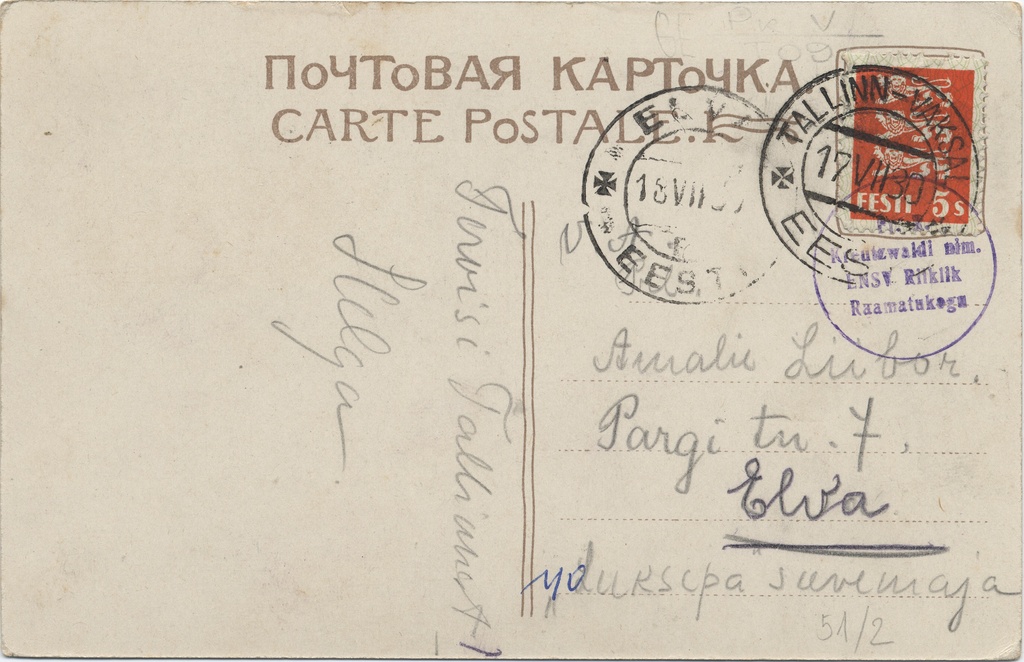 ПОЧТОВАЯ КАРТОЧКА
CARTE POSTALE.
TALLINN-VAKSAL
17 VII 30
EESTI
ELVA
18 VII 30
EESTI
EESTI 5 s
Kreutzwaldi nim.
ENSV Riiklik
Raamatukogu
Tervisi Tallinnast!
Helga.
Amalie Liibör.
Pargi tn. 7.
Elva
Luksepa suvemaja
51/2